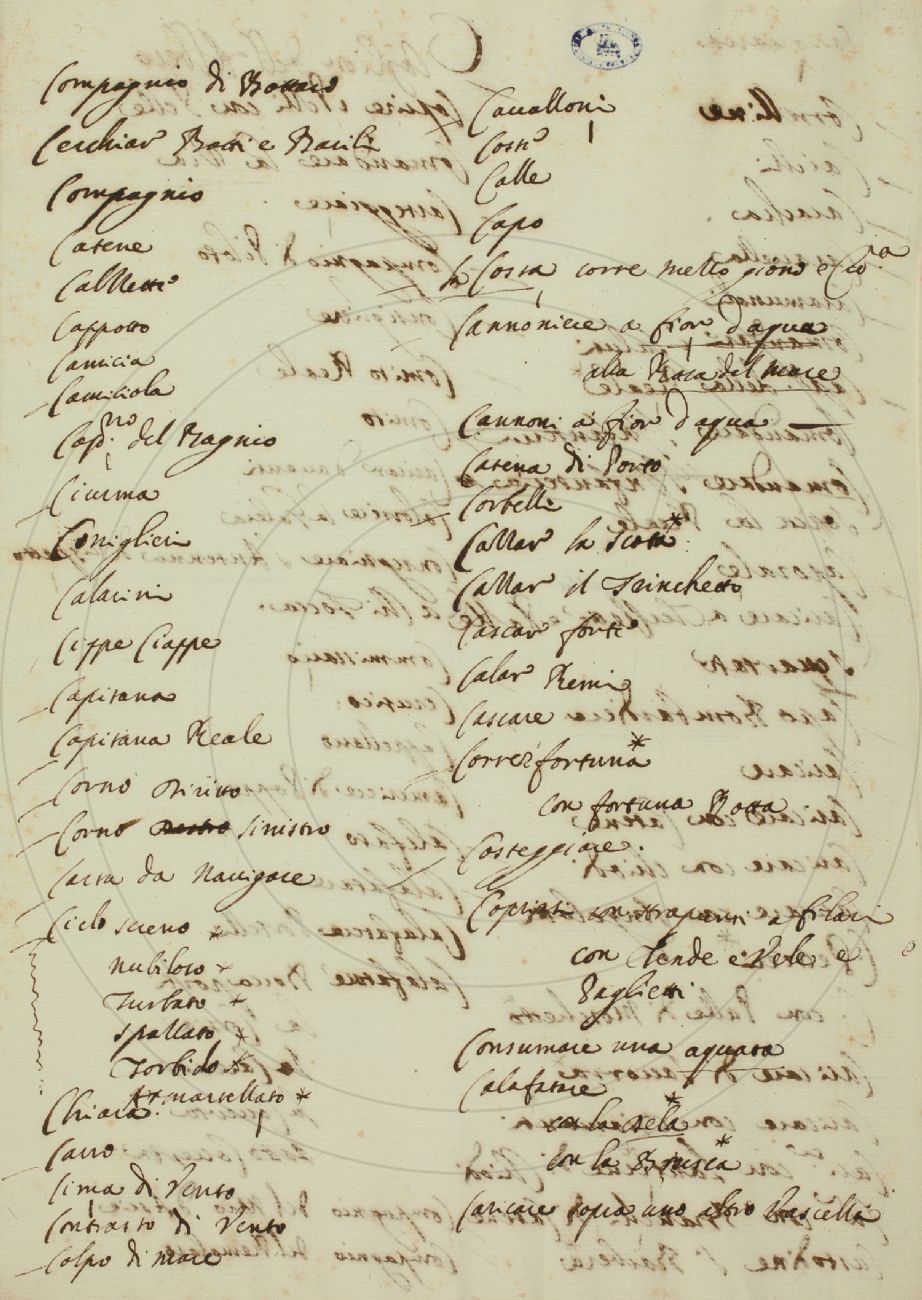 C
Compagnio di
Cerchiar Botti e Barili
Compagnio
Catene
Calzette
Cappotto
Camicia
Camiciola
Cap.no del Bagnio
Ciurma
Coniglieri
Calarini
Cippe Ciappe
Capitana
Capitana Reale
Corno Diritto
Corno sinistro
Carta da Navigare
Cielo sereno *
nubiloso *
Turbato *
spallato *
Torbido *
martellato *
Chiara
Carro
Cima di Vento
Contrasto di Vento
Colpo di mare
Cavalloni
Coste
Calle
Capo
la Costa corre mezzo giorno e
Cannonicie a fior d'aqua
alla Rasa del mare
Cannoni a fior d'aqua
Catena di Porto
Corbelli
Callar la Scotta *
Callar il Trinchetto
Cascar forte
Calar Remi
Cascare
Correr fortuna *
con fortuna Rotta
Costeggiare
con strapunti a filari
con Tende e Vele e
Paglietti
Consumare una aquata
Calafatare
con la Vela *
con la Brusca *
Caricare sopra uno altro Vascello